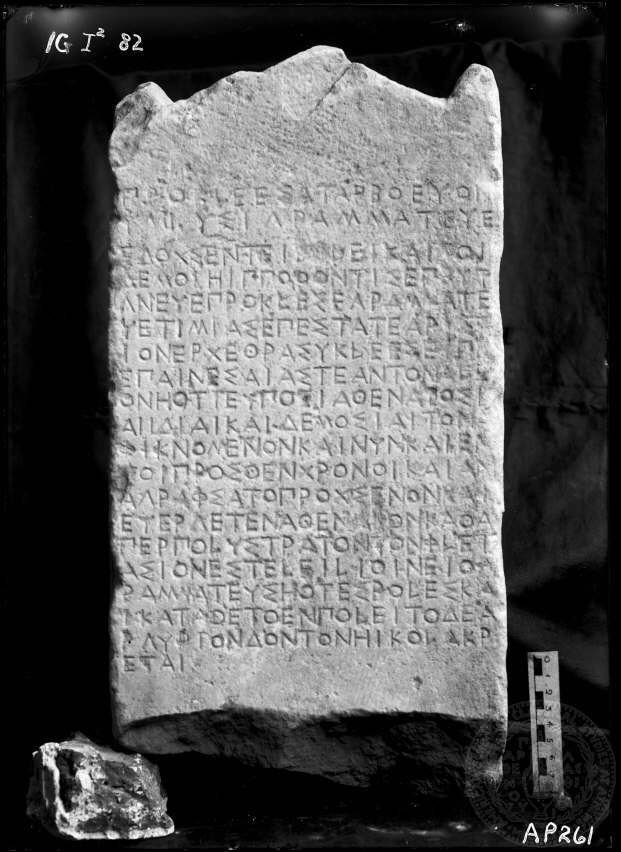 ΠΡΟΚΛΕΕΣΑΤΑΡΒΟΕΥΟΝ
ΥΜΕΥΣΕΓΡΑΜΜΑΤΕΥΕ
ΕΔΟΧΣΕΝΤΕΙΒΟΛΕΙΚΑΙΤΟΙ
ΔΕΜΟΙΗΙΠΠΟΘΟΝΤΙΣΕΠΡΥΤ
ΑΝΕΥΕΠΡΟΚΛΕΣΕΓΡΑΜΜΑΤΕ
ΥΕΤΙΜΙΑΣΕΠΕΣΤΑΤΕΑΡΙΣΣ
ΙΟΝΕΡΧΕΘΡΑΣΥΚΛΕΕΣΕΙΠΕ
ΕΠΑΙΝΕΣΑΙΑΣΤΕΑΝΤΟΝΑΛΕ
ΟΝΗΟΤΙΕΥΠΟΕΙΑΘΕΝΑΙΟΣΙ
ΑΙΙΔΙΑΙΚΑΙΔΕΜΟΣΙΑΙΤΟΝ
ΑΦΙΚΝΟΜΕΝΟΝΚΑΙΝΥΝΚΑΙΕΝ
ΤΟΙΠΡΟΣΘΕΝΧΡΟΝΟΙΚΑΙΑΝ
ΑΓΡΑΦΣΑΤΟΠΡΟΧΣΕΝΟΝΚΑΙ
ΕΥΕΡΓΕΤΕΝΑΘΕΝΑΙΟΝΚΑΘΑ
ΠΕΡΠΟΛΥΣΤΡΑΤΟΝΤΟΝΦΛΕΙ
ΑΣΙΟΝΕΣΤΕΛΕΙΛΙΘΙΝΕΙΟΓ
ΡΑΜΜΑΤΕΥΣΗΟΤΕΣΒΟΛΕΣΚΑ
ΙΚΑΤΑΘΕΤΟΕΝΠΟΛΕΙΤΟΔΕΑ
ΡΓΥΡΙΟΝΔΟΝΤΟΝΗΟΙΚΟΛΑΚΡ
ΕΤΑΙ
IG I² 82
AP261